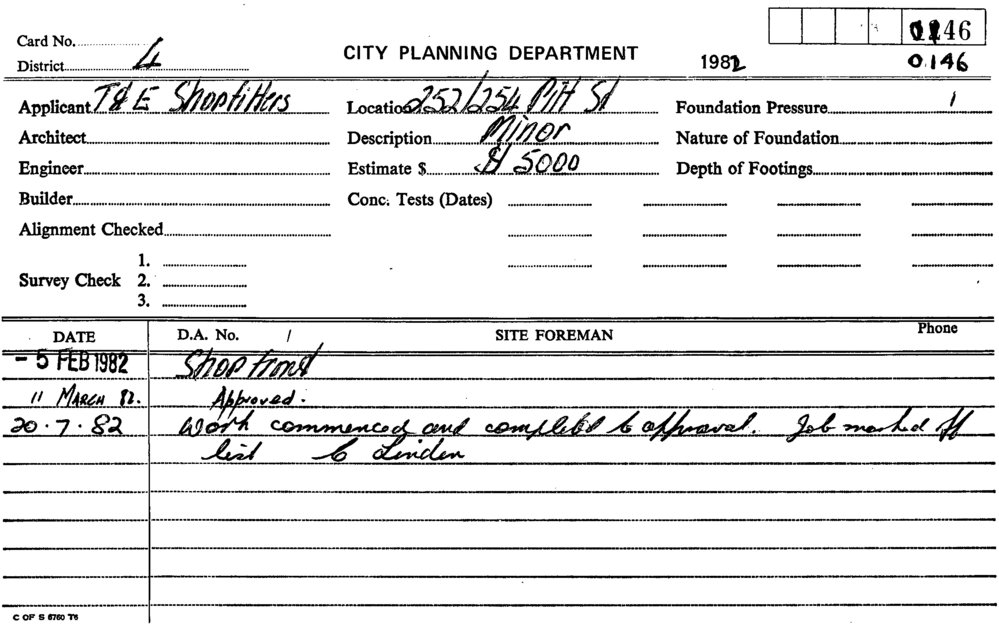 0146
Card No.
District 4
CITY PLANNING DEPARTMENT
1982
0.146
Applicant T & E Shopfitters
Location 252/254 Pitt St
Foundation Pressure
Architect
Description Minor
Nature of Foundation
Engineer
Estimate $ $ 5000
Depth of Footings
Builder
Conc. Tests (Dates)
Alignment Checked
1.
Survey Check 2.
3.
DATE D.A. No. / SITE FOREMAN Phone
- 5 FEB 1982 Shop front
11 MARCH 82. Approved.
20.7.82 Work commenced and completed to approval. Job marked off
list Linden
C OF S 5760 T6